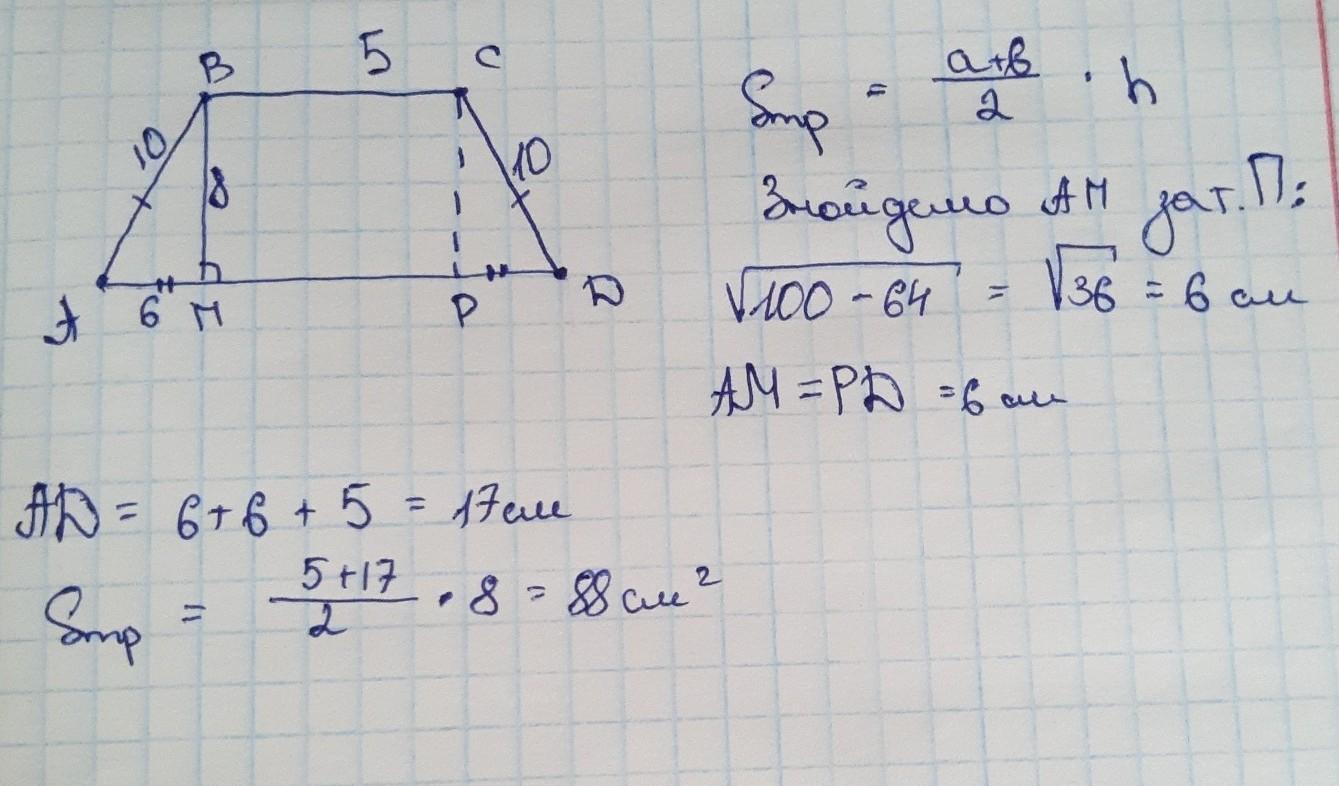 B 5 C
10 8 10
A 6 M P D
Sтр = a+b/2 · h
Знайдемо AM за т. П:
√100 - 64 = √36 = 6 см
AM = PD = 6 см
AD = 6+6 + 5 = 17 см
Sтр = 5+17/2 · 8 = 88 см²